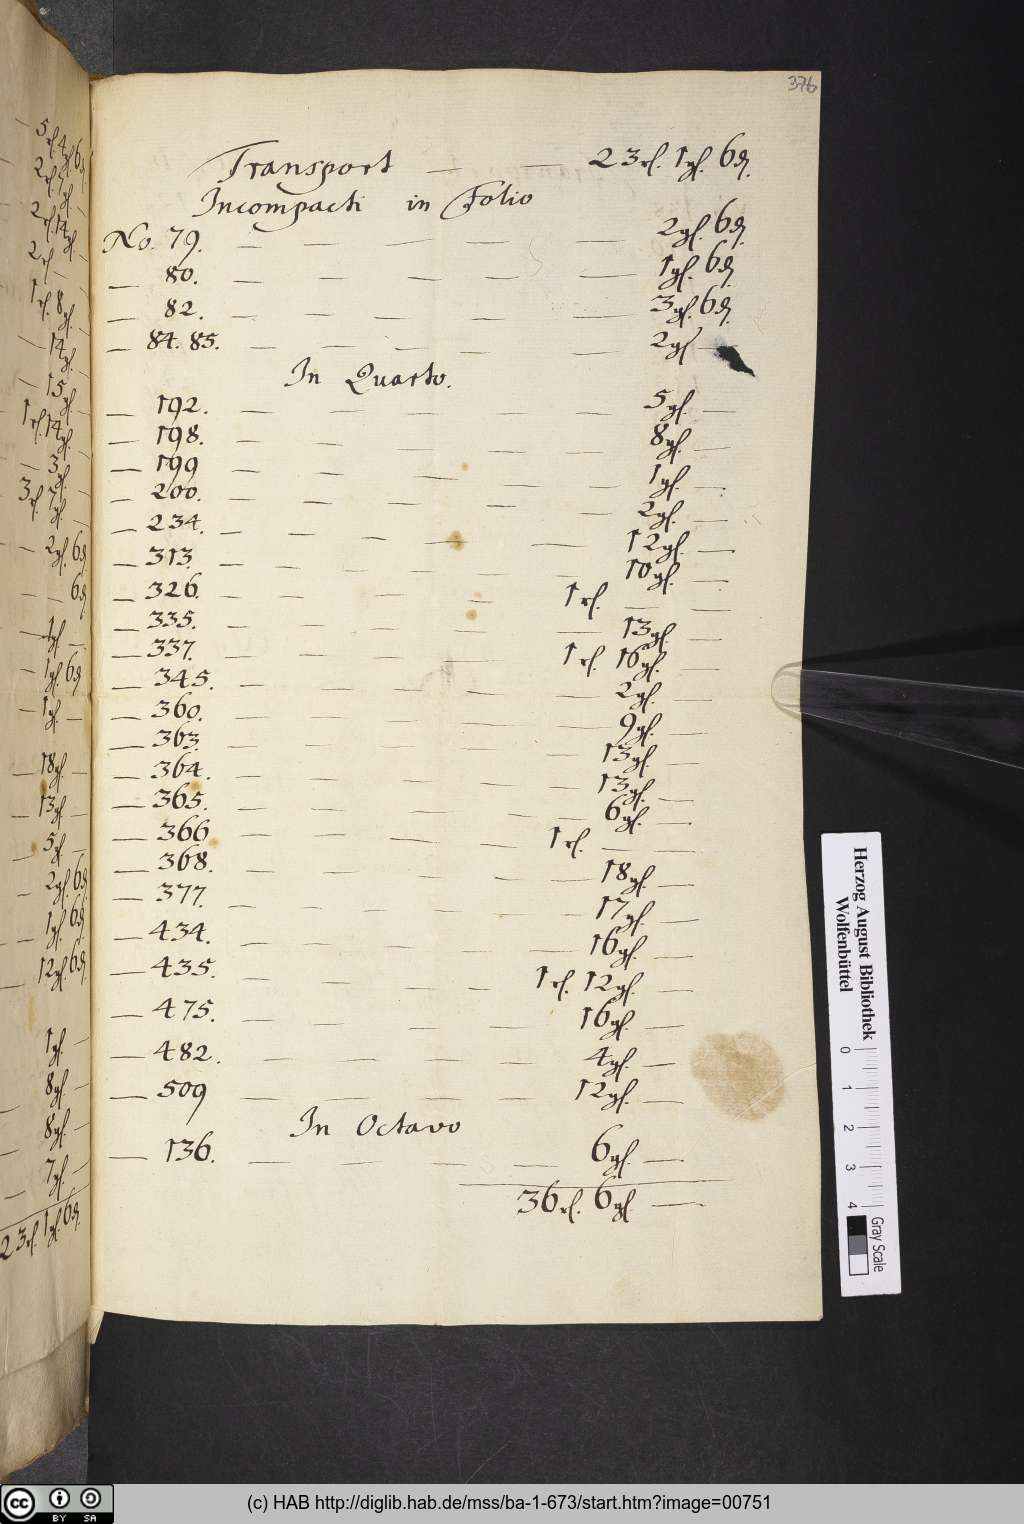 5 rl. 4 gl. 6 ₰
2 rl. 14 gl.
2 rl —
1 rl. 8 gl.
14 gl.
15 gl.
1 rl. 14 gl.
3 gl.
3 rl. 7 gl.
2 gl. 6 ₰
6 ₰
1 gl. —
1 gl. 6 ₰
1 gl. —
18 gl. —
13 gl. —
5 gl. —
2 gl. 6 ₰
1 gl. 6 ₰
12 gl. 6 ₰
1 gl. —
8 gl. —
8 gl. —
7 gl. —
23 rl. 1 gl. 6 ₰
376
Transport — — 23 rl. 1 gl. 6 ₰.
Incompacti in Folio
No. 79. — — — — — 2 gl. 6 ₰.
— 80. — — — — — 1 gl. 6 ₰.
— 82. — — — — — 3 gl. 6 ₰.
— 84. 85. — — — — — 2 gl —
In Quarto.
— 192. — — — — — 5 gl. —
— 198. — — — — — 8 gl. —
— 199 — — — — — 1 gl. —
— 200. — — — — — 2 gl. —
— 234. — — — — — 12 gl. —
— 313. — — — — — 10 gl. —
— 326. — — — — 1 rl. — —
— 335. — — — — — 13 gl. —
— 337. — — — — 1 rl. 16 gl. —
— 345. — — — — — 2 gl. —
— 360. — — — — — 9 gl. —
— 363. — — — — — 13 gl. —
— 364. — — — — — 13 gl. —
— 365. — — — — — 6 gl. —
— 366 — — — — 1 rl. — —
— 368. — — — — — 18 gl. —
— 377. — — — — — 17 gl. —
— 434. — — — — — 16 gl. —
— 435. — — — — 1 rl. 12 gl. —
— 475. — — — — — 16 gl. —
— 482. — — — — 4 gl. —
— 509 — — — — — 12 gl. —
In Octavo
— 136. — — — — — 6 gl. —
36 rl. 6 gl. —
Herzog August Bibliothek
Wolfenbüttel
0 1 2 3 4
Gray Scale
cc BY SA
(c) HAB http://diglib.hab.de/mss/ba-1-673/start.htm?image=00751